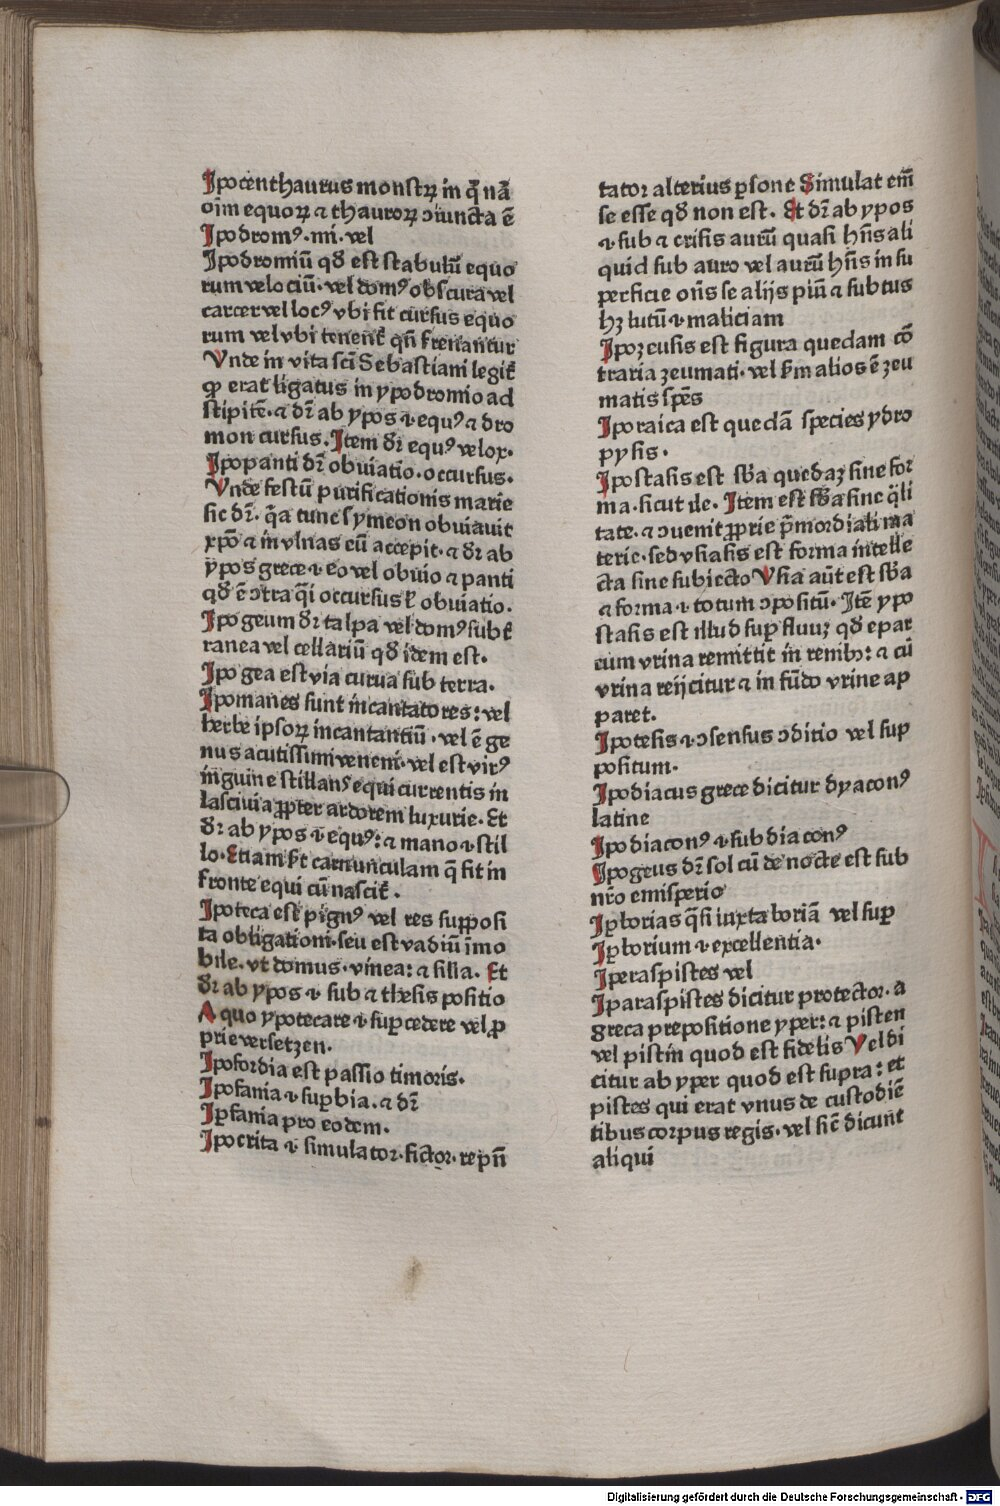 Ipocenthaurus monstrꝝ in q̄ nā
oīm equoꝝ ⁊ thauroꝝ ↄiuncta ē
Ipodromꝰ·mi·vel
Ipodromiū qđ est stabulū equo
rum velociū·vel domꝰ obscura vel
carcer vel locꝰ vbi fit cursus equo
rum vel vbi tenent̄ qn̄ frenantur
Vnde in vita scī Sebastiani legit̄
ꝙ erat ligatus in ypodromio ad
stipitē·⁊ dr̄ ab ypos·i·equꝰ ⁊ dro
mon cursus. Item dr̄ equꝰ velox·
Ipopanti dr̄ obuiatio·occursus·
Vnde festū purificationis marie
sic dr̄·q̄a tunc symeon obuiauit
xp̄o ⁊ in vlnas eū accepit·⁊ dr̄ ab
ypos grece·i·eo vel obuio ⁊ panti
qđ ē ↄtra q̄si occursus ł obuiatio.
Ipogeum dr̄ talpa vel domꝰ subt̄
ranea vel cellariū qđ idem est·
Ipogea est via curua sub terra.
Ipomanes sunt incantatores: vel
herbe ipsoꝝ incantantiū·vel ē ge
nus acutissimi veneni·vel est virꝰ
inguine stillanꝰ equi currentis in
lasciuia ꝓpter ardorem luxurie. Et
dr̄ ab ypos·i·equꝰ: ⁊ mano·i·stil
lo·Etiam fr̄t carnunculam q̄ fit in
fronte equi cū nascit̄·
Ipoteca est pignꝰ vel res supposi
ta obligationi·seu est vadiū īmo
bile·vt domus·vinea: ⁊ silia. Et
dr̄ ab ypos·i·sub ⁊ thesis positio
A quo ypotecare·i·suꝑcedere vel ꝓ
prie versetzen.
Ipofordia est passio timoris·
Ipofania·i·suꝑbia·⁊ dr̄
Iꝑfania pro eodem·
Ipocrita·i·simulator·fictor·rep̄n
tator alterius ꝑsone Simulat em̄
se esse qđ non est. Et dr̄ ab ypos
·i·sub ⁊ crisis aurū quasi hn̄s ali
quid sub auro vel aurū hn̄s in su
perficie on̄s se alijs piū ⁊ subtus
hꝫ lutū·i·maliciam
Ipozeusis est figura quedam cō
traria zeumati·vel ẜm alios ē zeu
matis sp̄es
Iporaica est quedā species ydro
pysis·
Ipostasis est sb̄a quedaꝫ sine for
ma·sicut ile·Item est sb̄a sine q̄li
tate·⁊ ↄuenit ꝓprie p̄mordiali ma
terie·sed vsiasis est forma intelle
cta sine subiecto Vsia aūt est sb̄a
⁊ forma·i·totum ↄpositū·Itē ypo
stasis est illud suꝑfluuꝫ qđ epar
cum vrina remittit in renibꝫ: ⁊ cū
vrina reijcitur ⁊ in fūdo vrine ap
paret.
Ipotesis·i·ↄsensus ↄditio vel sup
positum·
Ipodiacus grece dicitur dyaconꝰ
latine
Ipodiaconꝰ·i·subdiaconꝰ
Ipogeus dr̄ sol cū de nocte est sub
nr̄o emisperio
Iꝑborias q̄si iuxta boriā vel suꝑ
Iꝑborium·i·excellentia·
Iperaspistes vel
Iparaspistes dicitur protector·a
greca prepositione yper: ⁊ pisten
vel pistin quod est fidelis Vel di
citur ab yper quod est supra: et
pistes qui erat vnus de custodiē
tibus corpus regis·vel sic̄ dicunt
aliqui
Digitalisierung gefördert durch die Deutsche Forschungsgemeinschaft - DFG